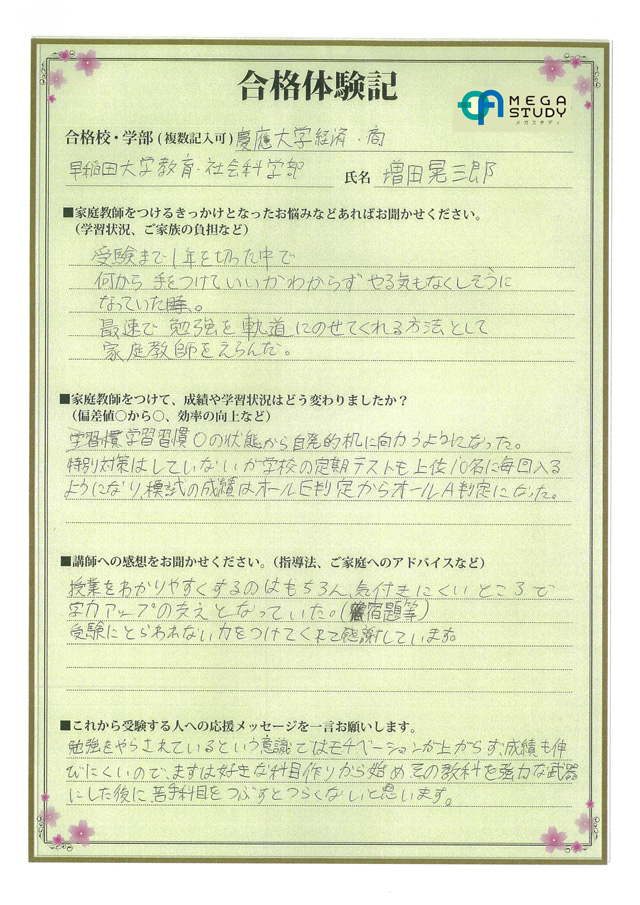 合格体験記
MEGA
STUDY
メガスタディ
合格校・学部(複数記入可)慶應大学経済・商
早稲田大学教育・社会科学部 氏名 増田晃三郎
■家庭教師をつけるきっかけとなったお悩みなどあればお聞かせください。
(学習状況、ご家族の負担など)
受験まで1年を切った中で
何から手をつけていいかわからずやる気もなくしそうに
なっていた時。
最速で勉強を軌道にのせてくれる方法として
家庭教師をえらんだ。
■家庭教師をつけて、成績や学習状況はどう変わりましたか?
(偏差値○から○、効率の向上など)
学習慣学習習慣0の状態から自発的机に向かうようになった。
特別対策はしていないが学校の定期テストも上位10名に毎回入る
ようになり、模試の成績はオールE判定からオールA判定になった。
■講師への感想をお聞かせください。(指導法、ご家庭へのアドバイスなど)
授業をわかりやすくするのはもちろん、気付きにくいところで
学力アップの支えとなっていた。(宿題等)
受験にとらわれない力をつけてくれて感謝しています。
■これから受験する人への応援メッセージを一言お願いします。
勉強をやらされているという意識ではモチベーションが上がらず、成績も伸
びにくいので、まずは好きな科目作りから始めその教科を強力な武器
にした後に、苦手科目をつぶすとつらくないと思います。